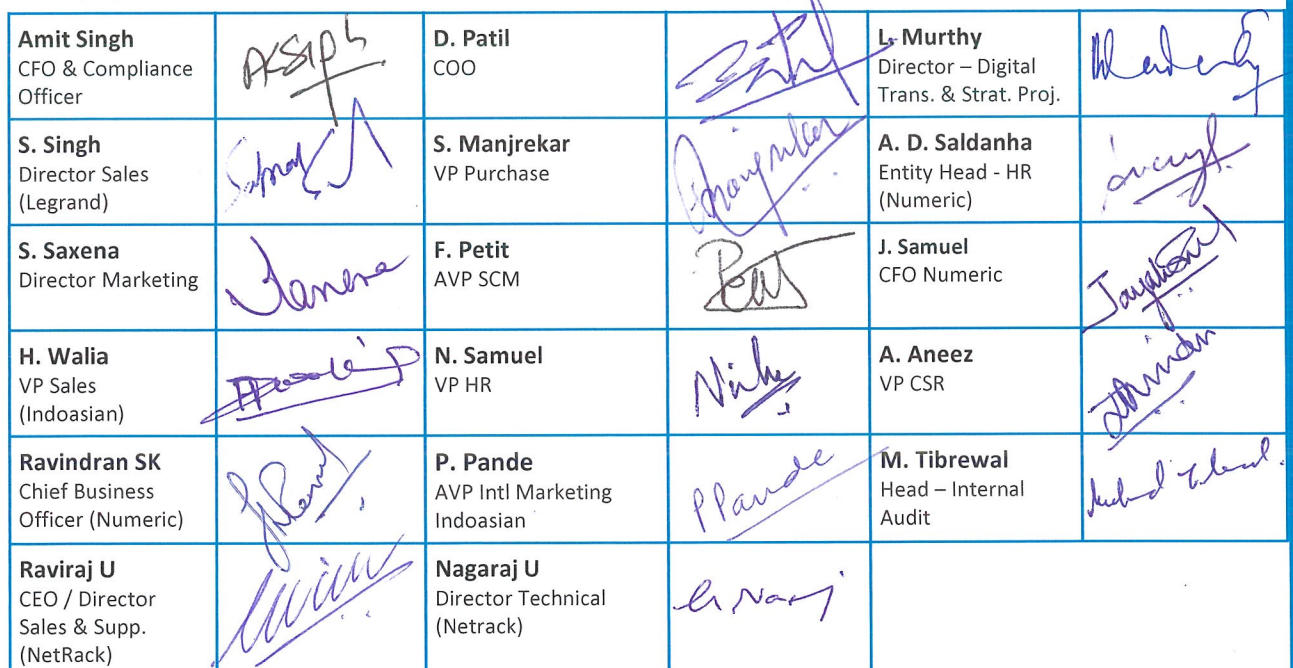 Amit Singh
CFO & Compliance
Officer
D. Patil
COO
L. Murthy
Director – Digital
Trans. & Strat. Proj.
S. Singh
Director Sales
(Legrand)
S. Manjrekar
VP Purchase
A. D. Saldanha
Entity Head - HR
(Numeric)
S. Saxena
Director Marketing
F. Petit
AVP SCM
J. Samuel
CFO Numeric
H. Walia
VP Sales
(Indoasian)
N. Samuel
VP HR
A. Aneez
VP CSR
Ravindran SK
Chief Business
Officer (Numeric)
P. Pande
AVP Intl Marketing
Indoasian
PPande
M. Tibrewal
Head – Internal
Audit
Raviraj U
CEO / Director
Sales & Supp.
(NetRack)
Nagaraj U
Director Technical
(Netrack)